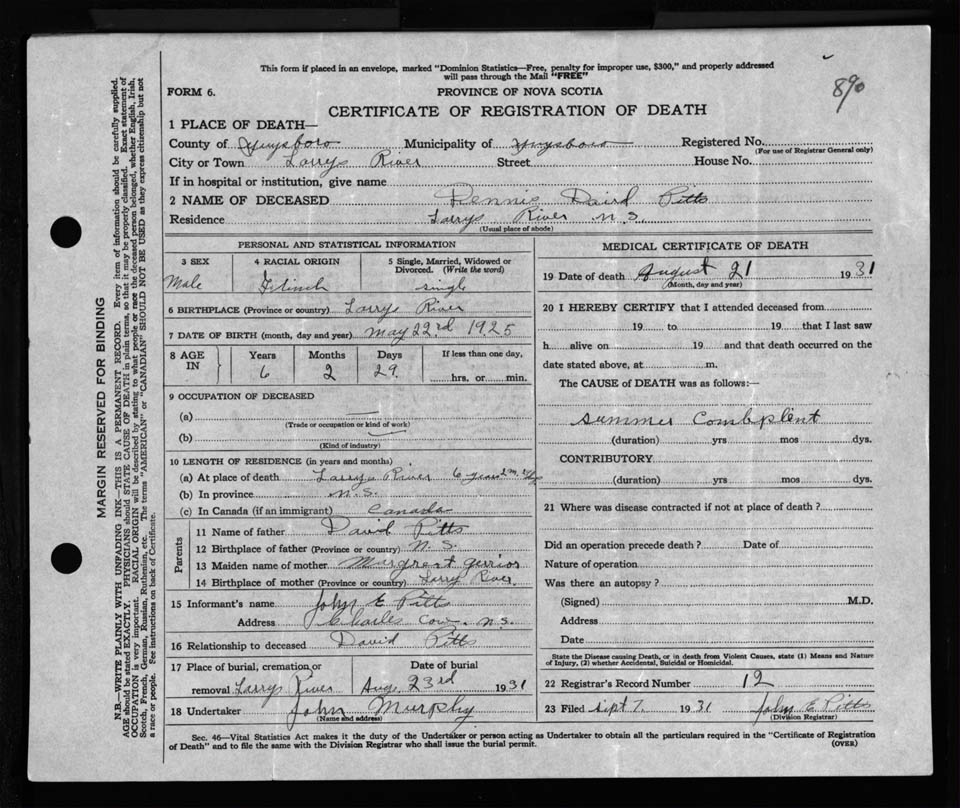 This form if placed in an envelope, marked "Dominion Statistics—Free, penalty for improper use, $300," and properly addressed
will pass through the Mail "FREE"
890
FORM 6.
PROVINCE OF NOVA SCOTIA
CERTIFICATE OF REGISTRATION OF DEATH
1 PLACE OF DEATH—
County of Guysboro Municipality of Guysboro Registered No.
(For use of Registrar General only)
City or Town Larrys River Street House No.
If in hospital or institution, give name
2 NAME OF DECEASED Dennis Pitts
Residence Larrys River N.S.
(Usual place of abode)
PERSONAL AND STATISTICAL INFORMATION
3 SEX 4 RACIAL ORIGIN 5 Single, Married, Widowed or
Divorced. (Write the word)
Male single
6 BIRTHPLACE (Province or country) Larrys River
7 DATE OF BIRTH (month, day and year) May 22rd 1925
8 AGE IN Years Months Days If less than one day,
6 2 29 hrs. or min.
9 OCCUPATION OF DECEASED
(a)
(Trade or occupation or kind of work)
(b)
(Kind of industry)
10 LENGTH OF RESIDENCE (in years and months)
(a) At place of death Larrys River 6 years 2m.
(b) In province N.S.
(c) In Canada (if an immigrant) Canada
Parents
11 Name of father David Pitts
12 Birthplace of father (Province or country) N.S.
13 Maiden name of mother
14 Birthplace of mother (Province or country) Larry River
15 Informant's name John E Pitts
Address Charles Cove. N.S.
16 Relationship to deceased David Pitts
17 Place of burial, cremation or Date of burial
removal Larrys River Aug. 23rd 1931
18 Undertaker John Murphy
(Name and address)
MEDICAL CERTIFICATE OF DEATH
19 Date of death August 21 1931
(Month, day and year)
20 I HEREBY CERTIFY that I attended deceased from
19 to 19 that I last saw
h alive on 19 and that death occurred on the
date stated above, at m.
The CAUSE of DEATH was as follows:—
summer Complent
(duration) yrs mos dys.
CONTRIBUTORY
(duration) yrs mos dys.
21 Where was disease contracted if not at place of death?
Did an operation precede death? Date of
Nature of operation
Was there an autopsy?
(Signed) M.D.
Address
Date
State the Disease causing Death, or in death from Violent Causes, state (1) Means and Nature
of Injury, (2) whether Accidental, Suicidal or Homicidal.
22 Registrar's Record Number 12
23 Filed Sept 7. 1931 John E Pitts
(Division Registrar)
Sec. 46—Vital Statistics Act makes it the duty of the Undertaker or person acting as Undertaker to obtain all the particulars required in the "Certificate of Registration
of Death" and to file the same with the Division Registrar who shall issue the burial permit.
(OVER)
MARGIN RESERVED FOR BINDING
N.B.—WRITE PLAINLY WITH UNFADING INK—THIS IS A PERMANENT RECORD. Every item of information should be carefully supplied.
AGE should be stated EXACTLY. PHYSICIANS should STATE CAUSE OF DEATH in plain terms, so that it may be properly classified. Exact statement of
OCCUPATION is very important. RACIAL ORIGIN will be described by stating to what people or race the deceased person belonged, whether English, Irish,
Scotch, French, German, Russian, Ruthenian, etc. The terms "AMERICAN" or "CANADIAN" SHOULD NOT BE USED as they express citizenship but not
a race or people. See instructions on back of Certificate.